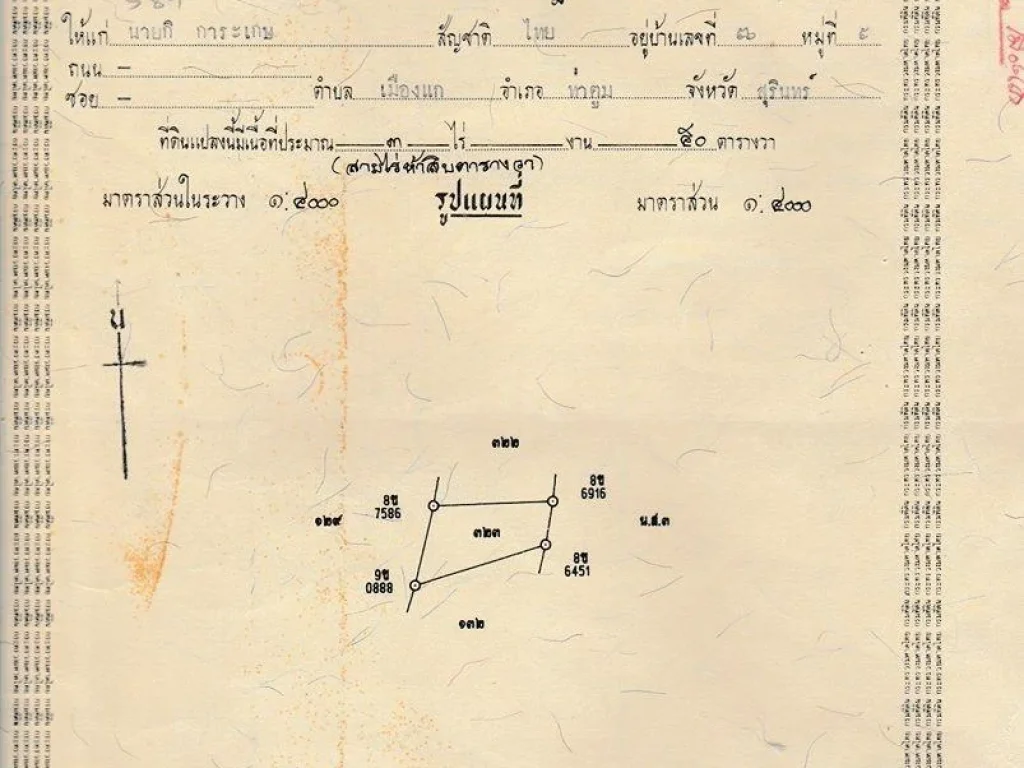 ให้แก่ นายกิ การะเกษ สัญชาติ ไทย อยู่บ้านเลขที่ ๕๖ หมู่ที่ ๙
ถนน —
ซอย — ตำบล เมืองแก อำเภอ ท่าตูม จังหวัด สุรินทร์
ที่ดินแปลงนี้มีเนื้อที่ประมาณ ๓ ไร่ งาน ๕๐ ตารางวา
(สามไร่ห้าสิบตารางวา)
มาตราส่วนในระวาง ๑:๔๐๐๐ รูปแผนที่ มาตราส่วน ๑:๔๐๐๐
น
๓๒๒
8ข
7586
8ข
6916
๑๒๙
๓๒๓
น.ส.๓
9ข
0888
8ข
6451
๑๓๒